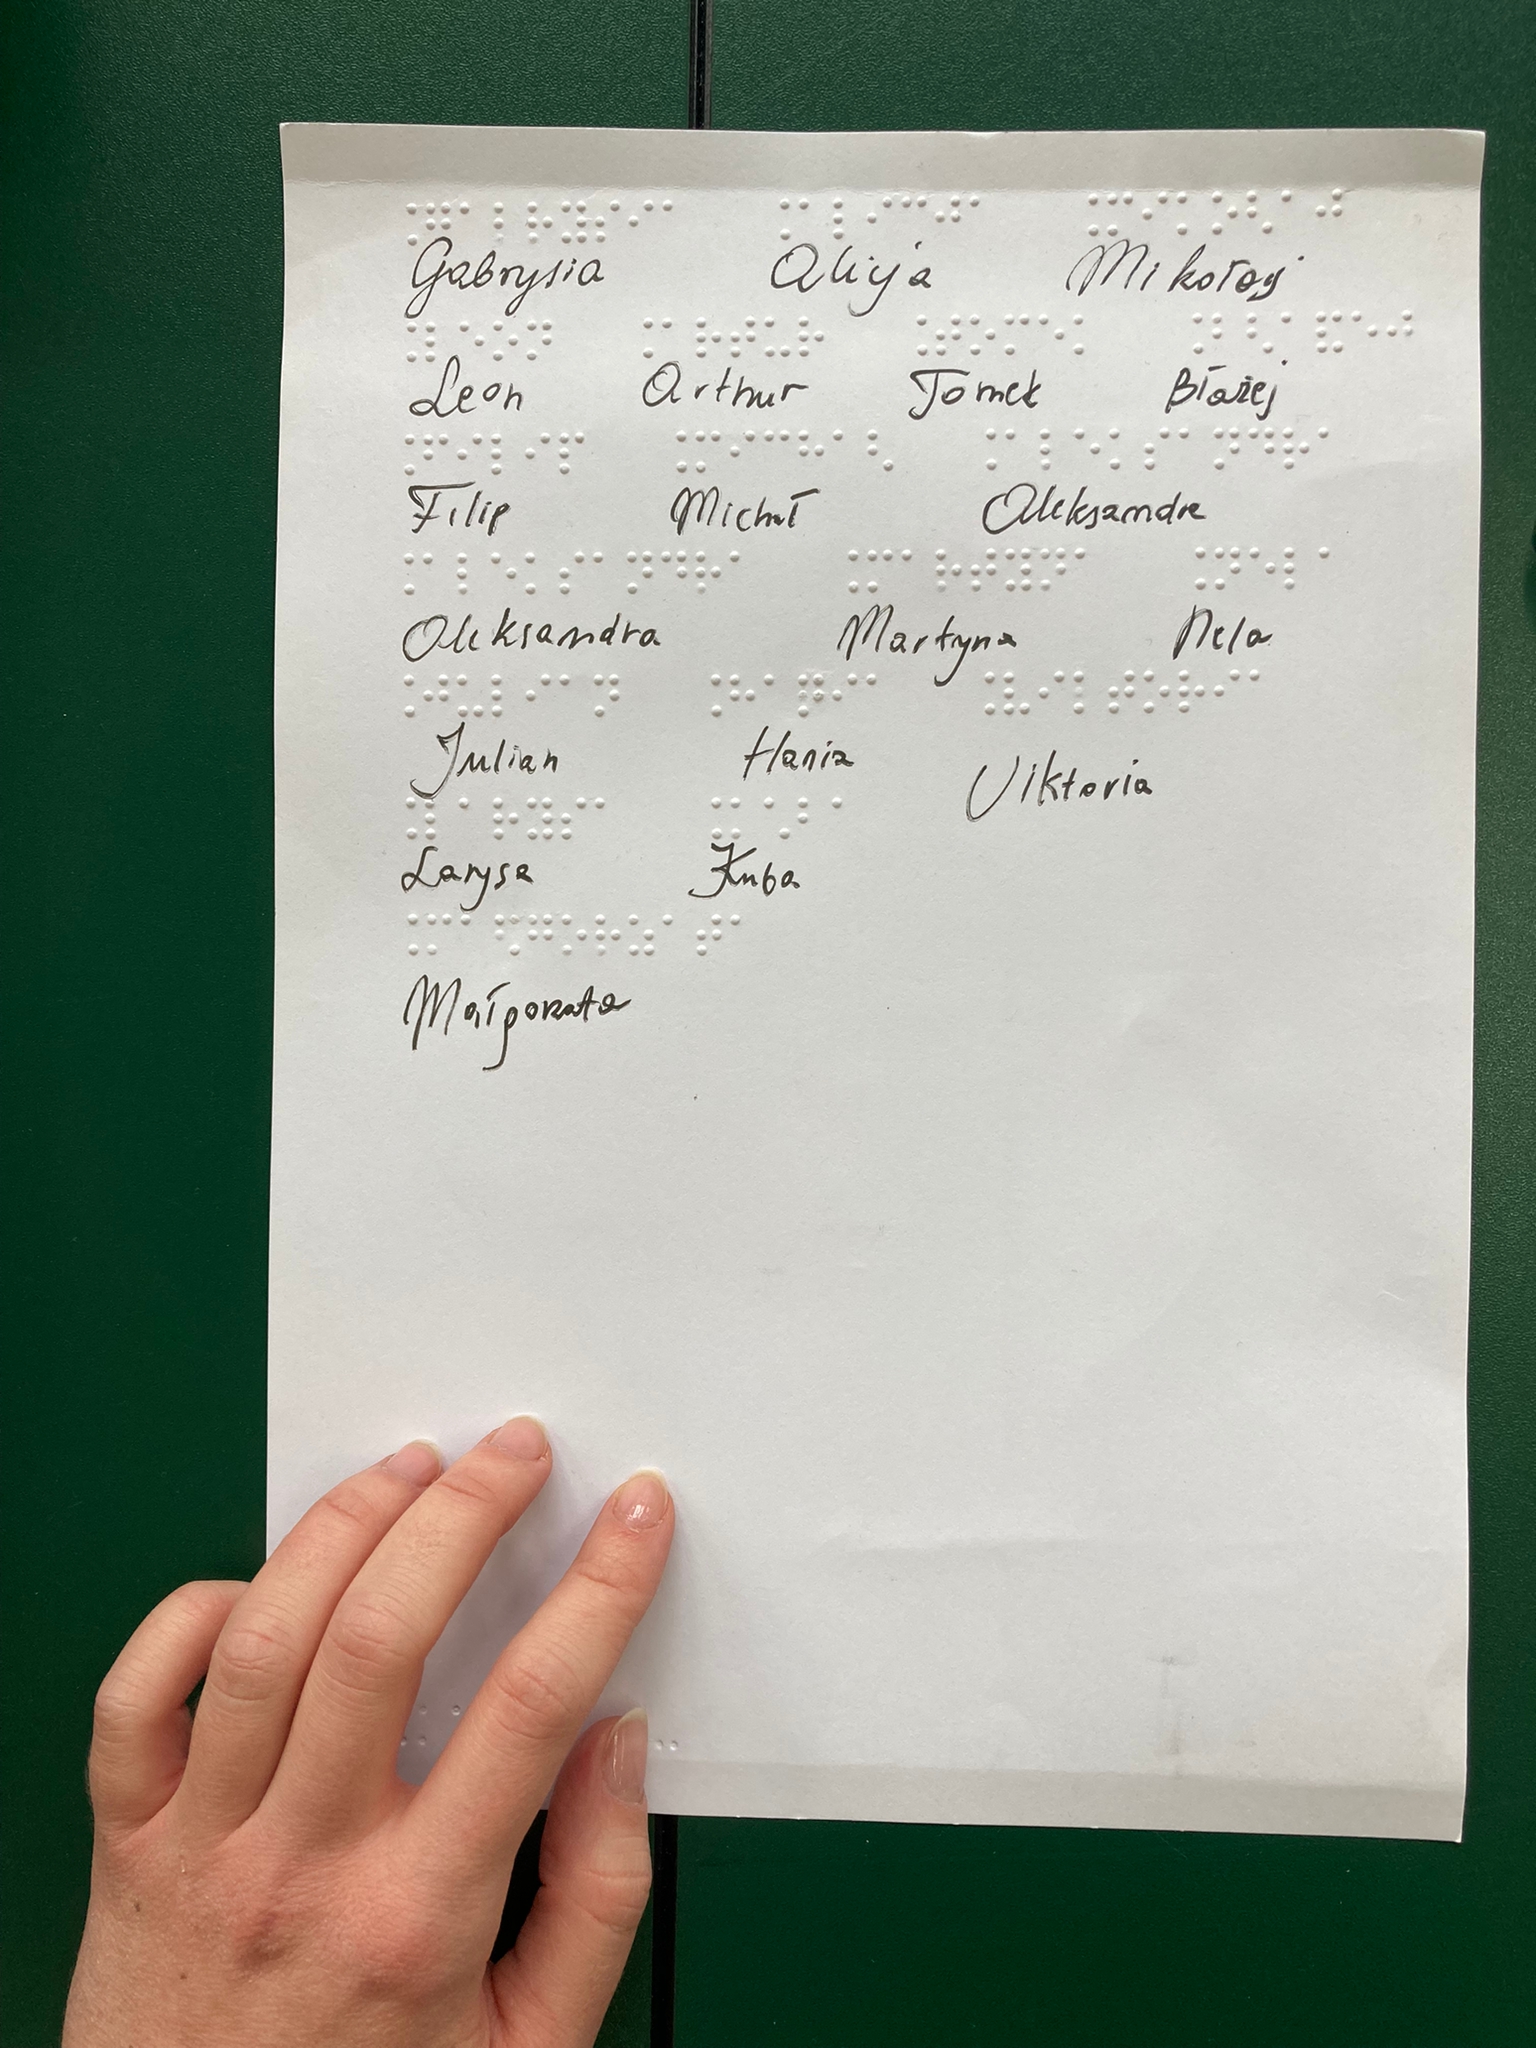 Gabrysia Alicja Mikołaj
Leon Arthur Tomek Błażej
Filip Michał Aleksandra
Aleksandra Martyna Nela
Julian Hania Viktoria
Larysa Kuba
Małgorzata